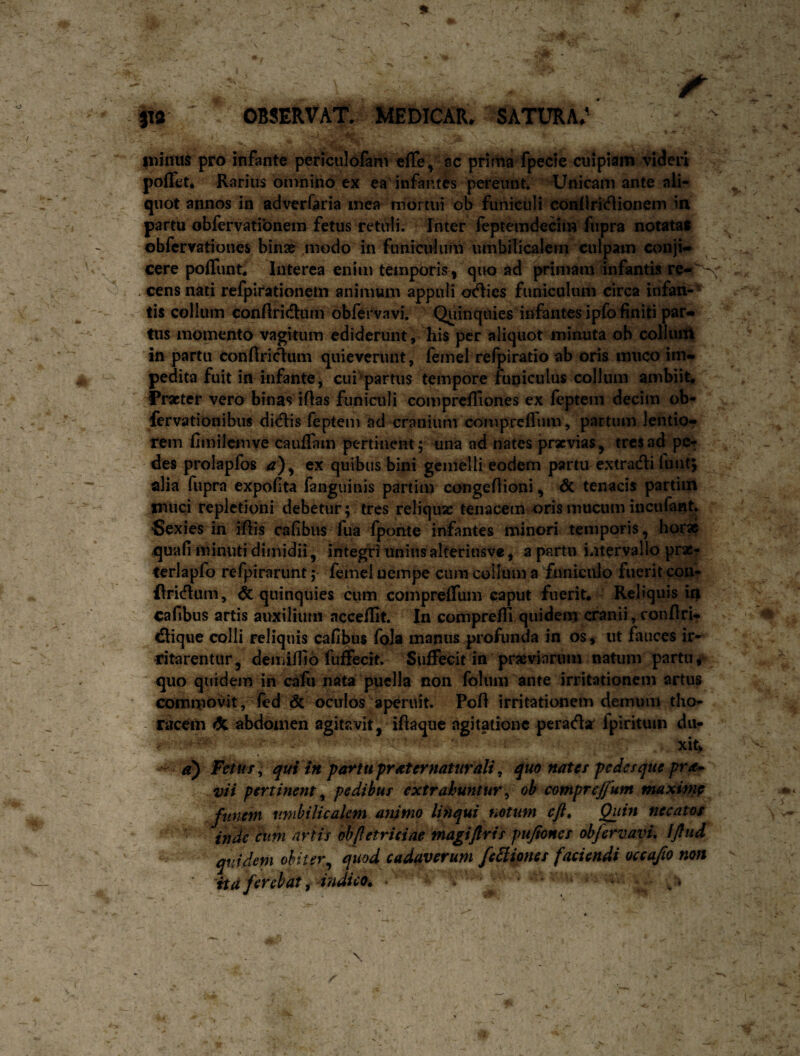 312 OBSERVAT. MEDICAR. SATURA.
minus pro infante periculofam effe, ac prima fpecie cuipiam videri
poffet. Rarius omnino ex ea infantes pereunt. Unicam ante ali-
quot annos in adverfaria mea mortui ob funiculi conftrictionem in
partu obfervationem fetus retuli. Inter feptemdecim fupra notatas
obfervationes binæ modo in funiculum umbilicalem culpam conji-
cere poffunt. Interea enim temporis, quo ad primam infantis re-
cens nati refpirationem animum appuli octies funiculum circa infan-
tis collum conftrictum obfervavi. Quinquies infantes ipfo finiti par-
tus momento vagitum ediderunt, his per aliquot minuta ob collum
in partu conftrictum quieverunt, femel refpiratio ab oris muco im-
pedita fuit in infante, cui partus tempore funiculus collum ambiit.
Præter vero binas iftas funiculi compreffiones ex feptem decim ob-
fervationibus dictis feptem ad cranium compreffum, partum lentio-
rem fimilemve cauffam pertinent; una ad nates prævias, tres ad pe-
des prolapfos a), ex quibus bini gemelli eodem partu extracti funt;
alia fupra expofita fanguinis partim congeftioni, & tenacis partim
muci repletioni debetur; tres reliquæ tenacem oris mucum incufant.
Sexies in iftis cafibus fua fponte infantes minori temporis, horæ
quafi minuti dimidii, integri unius alteriusve, a partu intervallo præ-
terlapfo refpirarunt; femel nempe cum collum a funiculo fuerit con-
ftrictum, & quinquies cum compreffum caput fuerit. Reliquis in
cafibus artis auxilium acceffit. In compreffi quidem cranii, conftri-
ctique colli reliquis cafibus fola manus profunda in os, ut fauces ir-
ritarentur, demiffio fuffecit. Suffecit in præviarum natum partu,
quo quidem in cafu nata puella non folum ante irritationem artus
commovit, fed & oculos aperuit. Poft irritationem demum tho-
racem & abdomen agitavit, iftaque agitatione peracta fpiritum du-
xit.
a) Fetus, qui in partu præternaturali, quo nates pedesque præ-
vii pertinent, pedibus extrahuntur, ob compreffum maxime
funem umbilicalem animo linqui notum eft. Quin necatos
inde cum artis obftetriciae magiftris pufiones obfervavi. Iftud
quidem obiter, quod cadaverum fectiones faciendi occafio non
ita ferebat, indico.